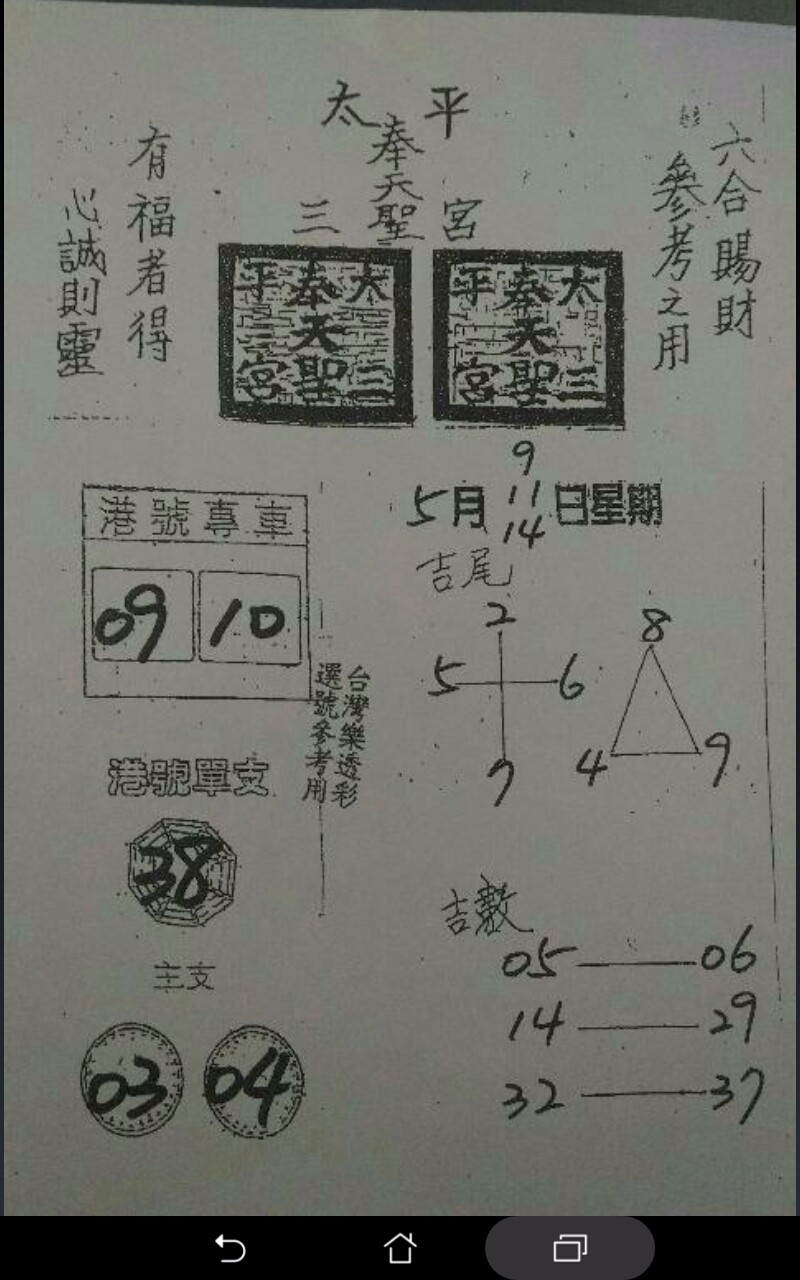 太平
奉天聖
三宮
六合賜財
參考之用
有福者得
心誠則靈
太三
奉天聖
平三宮
太三
奉天聖
平三宮
港號專車
09 10
9
5月 11 日星期
14
吉尾
2
5 6
7
8
4 9
台灣樂透彩
選號參考用
港號單支
38
主支
03 04
吉數
05 — 06
14 — 29
32 — 37